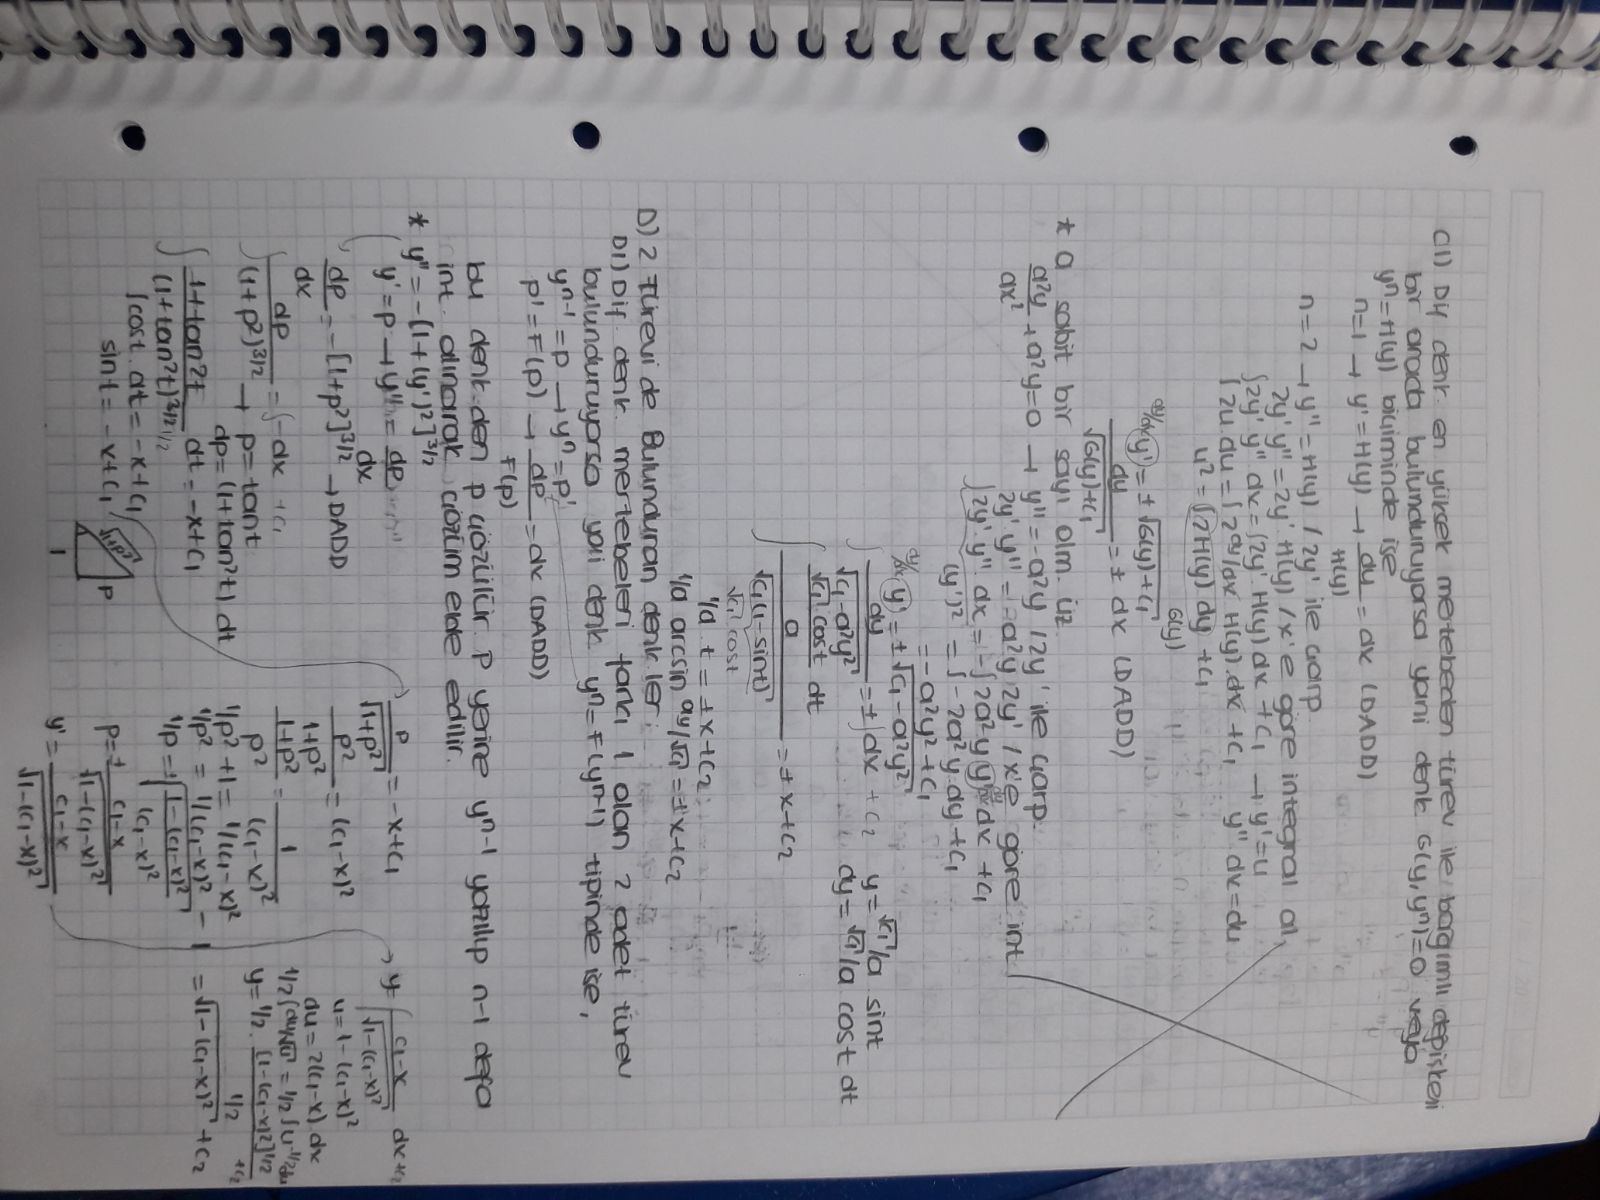 C1) Dif denk. en yüksek mertebeden türev ile bağımlı değişkeni
bir arada bulunduruyorsa yani denk G(y, yⁿ)=0 veya
yⁿ=H(y) biçiminde ise
n=1 → y'=H(y) → dy/H(y) = dx (DADD)
n=2 → y''=H(y) / 2y' ile çarp.
2y' y''=2y' H(y) / x'e göre integral al.
∫2y' y'' dx=∫2y'. H(y) dx +c₁ → y'=u
∫2u.du=∫2 dy/dx H(y).dx +c₁ y'' dx=du
u²=∫2H(y) dy +c₁
G(y)
dy/dx y'=±√(G(y)+c₁)
dy/√(G(y)+c₁) = ± dx (DADD)
* a sabit bir sayı olm. üz.
a²y/ax² +a²y=0 → y''=-a²y /2y' ile çarp.
2y' y''= -a²y 2y' / x'e göre int
∫2y'.y'' dx=-∫2a²y y' dy/dx dx +c₁
(y')² =∫-2a²y.dy+c₁
=-a²y²+c₁
dy/dx y'=±√(c₁-a²y²)
∫ dy/√(c₁-a²y²) =±∫dx +c₂ y=√c₁/a sint
dy=√c₁/a cost dt
∫ (√c₁ cost dt / a) / √(c₁(1-sint)) = ±x+c₂
√c₁ cost
1/a t = ±x+c₂
1/a arcsin ay/√c₁ = ±x+c₂
D) 2 Türevi de Bulunduran denkler:
D1) Dif denk. mertebeleri farkı 1 olan 2 adet türev
bulunduruyorsa yani denk yⁿ=F(yⁿ⁻¹) tipinde ise,
yⁿ⁻¹=p → yⁿ=p'
p'=F(p) → dp/F(p) =dx (DADD)
bu denk.den p çözülür. p yerine yⁿ⁻¹ yazılıp n-1 defa
int. alınarak çözüm elde edilir.
* y''=-[1+(y')²]^3/2
y'=p → y''= dp/dx
dp/dx =-[1+p²]^3/2 → DADD
∫ dp/(1+p²)^3/2 =∫-dx +c₁
→ p=tant
dp=(1+tan²t) dt
∫ (1+tan²t)/(1+tan²t)^3/2 1/2 dt=-x+c₁
∫cost.dt=-x+c₁
sint=-x+c₁
√(1+p²) p
1
p/√(1+p²) =-x+c₁
p²/(1+p²) =(c₁-x)²
(1+p²)/p² = 1/(c₁-x)²
1/p²+1= 1/(c₁-x)²
1/p² = 1/(c₁-x)² - 1
1/p=±√((1-(c₁-x)²)/(c₁-x)²)
p=± (c₁-x)/√(1-(c₁-x)²)
y'= (c₁-x)/√(1-(c₁-x)²)
y=∫ (c₁-x)/√(1-(c₁-x)²) dx+c₂
u=1-(c₁-x)²
du=2(c₁-x).dx
1/2∫du/√u = 1/2∫u^-1/2 du
y=1/2. [1-(c₁-x)²]^1/2 / 1/2 +c₂
=√(1-(c₁-x)²) +c₂